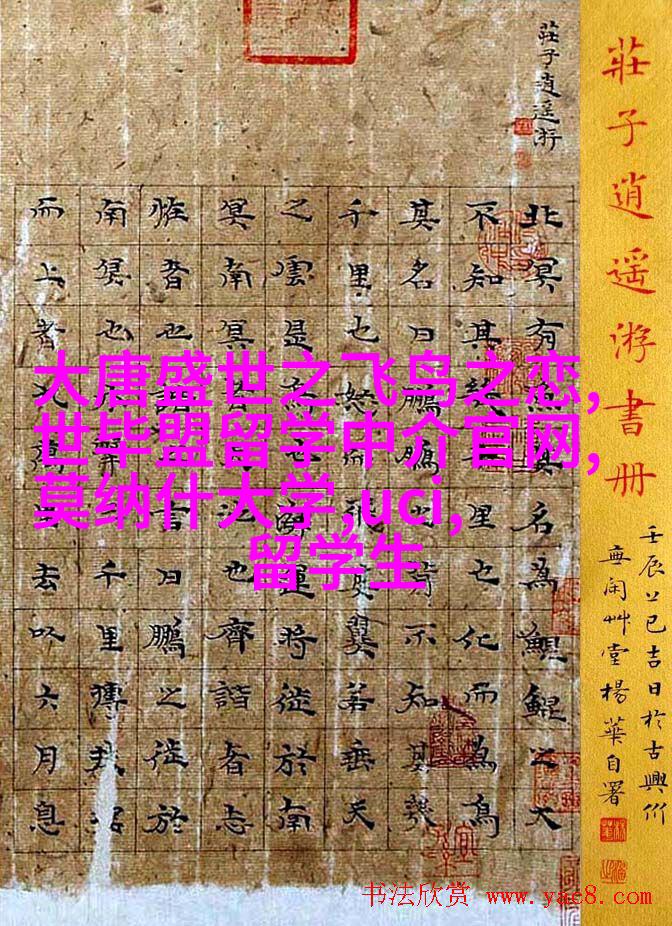 莊子逍遙游書册
壬辰上巳吉日於古興州
無闲艸堂楊華自署
莊子逍遙游
北冥有魚其名為鯤鯤之大
不知其里也化而為鳥
其名曰鵬鵬之背不知其幾
千里也怒而飛其翼若垂天
之雲是鳥也海運將徙於南
冥南冥者池也齊諧者志
恠者也諧言曰鵬之徙於
南冥也水擊千里摶扶搖
而上者九萬去以六月息
大唐盛世之飞鸟之恋,
世毕盟留学中介官网,
莫纳什大学,uci,
留学生
书法欣赏 www.yac8.com